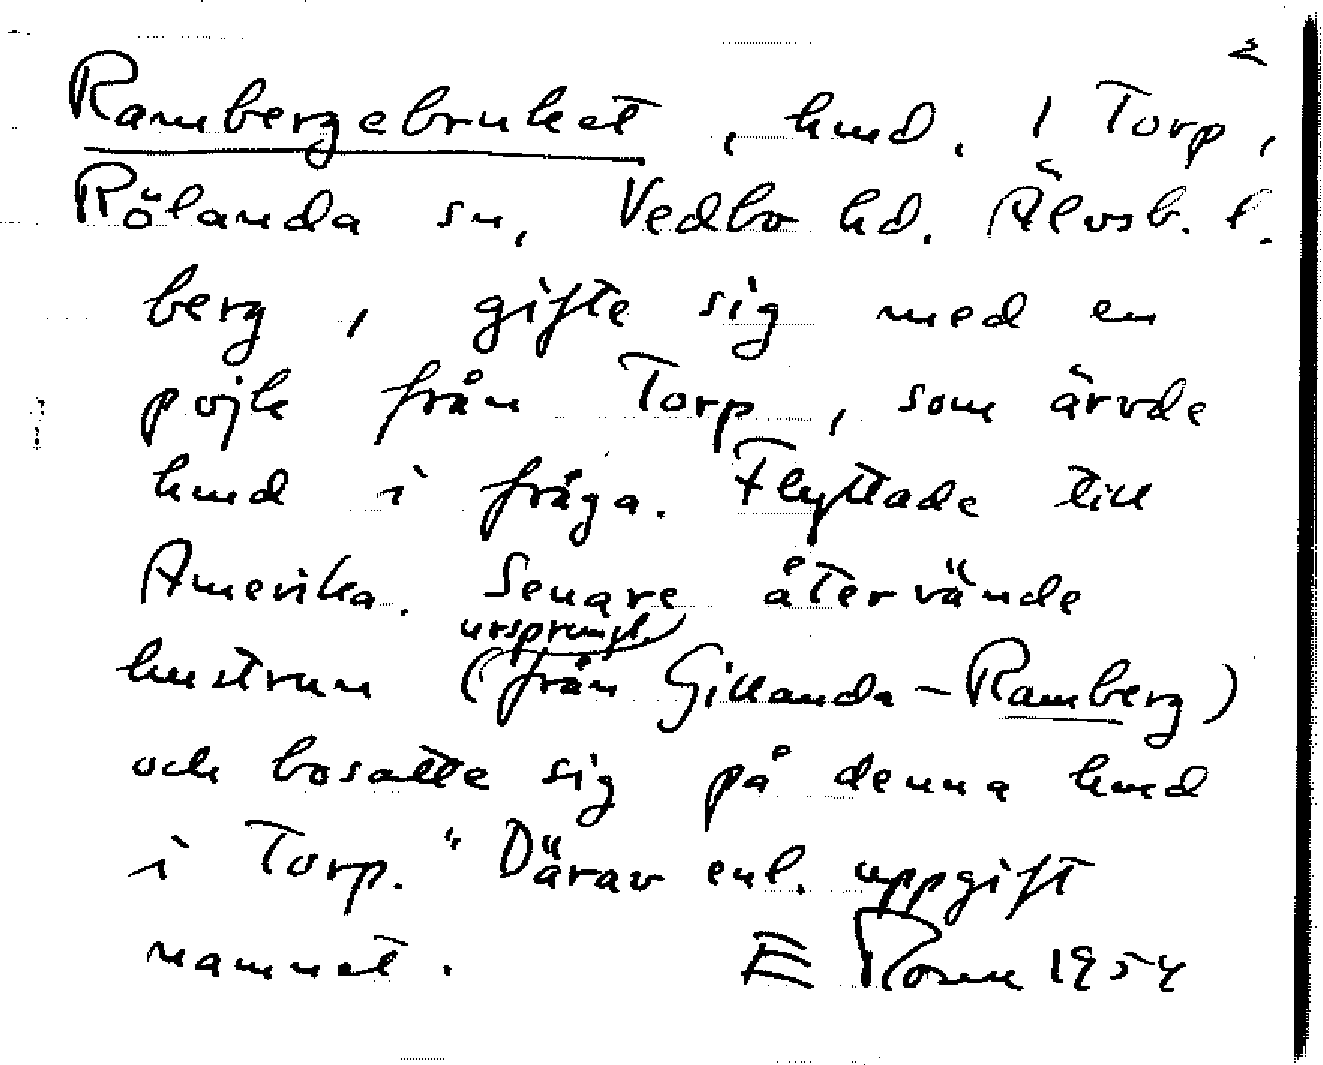 2
Rambergebruket, hmd. i Torp,
Rölanda sn, Vedbo hd. Älvsb. l.
berg, gifte sig med en
pojk från Torp, som ärvde
hmd i fråga. Flyttade till
Amerika. Senare återvände
hustrun (ursprungl. från Gillanda-Ramberg)
och bosatte sig på denna hmd
i Torp." Därav enl. uppgift
namnet. E Rosen 1954